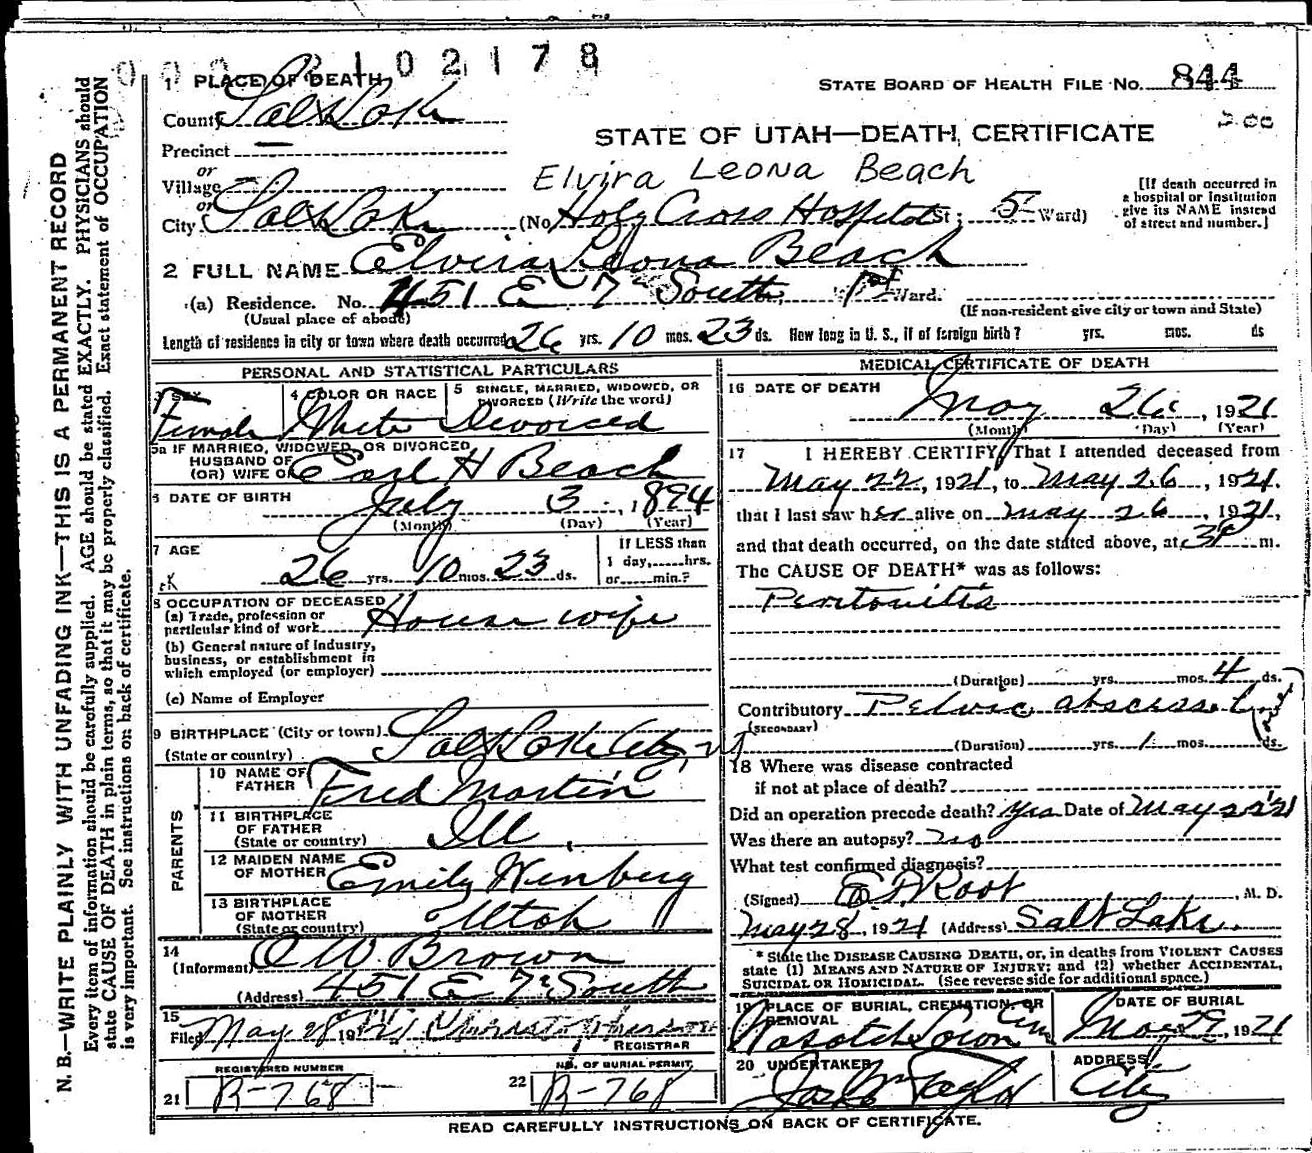 102178
1 PLACE OF DEATH
STATE BOARD OF HEALTH FILE No. 844
County Salt Lake
STATE OF UTAH—DEATH CERTIFICATE
Precinct —
or
Village
Elvira Leona Beach
[If death occurred in a hospital or institution give its NAME instead of street and number.]
or
City Salt Lake (No. Holy Cross Hospital St.; 5 Ward)
2 FULL NAME Elvira Leona Beach
(a) Residence. No. 451 E 7th South, 1st Ward.
(Usual place of abode) (If non-resident give city or town and State)
Length of residence in city or town where death occurred 26 yrs. 10 mos. 23 ds. How long in U. S., if of foreign birth? yrs. mos. ds
PERSONAL AND STATISTICAL PARTICULARS
3 SEX
Female
4 COLOR OR RACE
White
5 SINGLE, MARRIED, WIDOWED, OR DIVORCED (Write the word)
Divorced
5a IF MARRIED, WIDOWED, OR DIVORCED
HUSBAND OF
(OR) WIFE OF Earl H Beach
6 DATE OF BIRTH July 3, 1894
(Month) (Day) (Year)
7 AGE
26 yrs. 10 mos. 23 ds.
If LESS than
1 day,.....hrs.
or.....min.?
8 OCCUPATION OF DECEASED
(a) Trade, profession or
particular kind of work House wife
(b) General nature of Industry,
business, or establishment in
which employed (or employer)
(c) Name of Employer
9 BIRTHPLACE (City or town) Salt Lake City, Ut
(State or country)
PARENTS
10 NAME OF
FATHER Fred Martin
11 BIRTHPLACE
OF FATHER
(State or country) Ill.
12 MAIDEN NAME
OF MOTHER Emily Wenberg
13 BIRTHPLACE
OF MOTHER
(State or country) Utah
14
(Informant) O W. Brown
(Address) 451 E 7 South
15
Filed May 28 1921
REGISTRAR
REGISTERED NUMBER
21 R-768
NO. OF BURIAL PERMIT
22 R-768
MEDICAL CERTIFICATE OF DEATH
16 DATE OF DEATH
May 26, 1921
(Month) (Day) (Year)
17 I HEREBY CERTIFY, That I attended deceased from
May 22, 1921, to May 26, 1921.
that I last saw her alive on May 26, 1921,
and that death occurred, on the date stated above, at 3P m.
The CAUSE OF DEATH* was as follows:
Peritonitis
(Duration) yrs. mos. 4 ds.
Contributory Pelvic abscess
(SECONDARY)
(Duration) yrs. 1 mos. ds.
18 Where was disease contracted
if not at place of death?
Did an operation precede death? Yes Date of May 22'21
Was there an autopsy? no
What test confirmed diagnosis?
(Signed) Root, M. D.
May 28, 1921 (Address) Salt Lake.
* State the DISEASE CAUSING DEATH, or, in deaths from VIOLENT CAUSES
state (1) MEANS AND NATURE OF INJURY; and (2) whether ACCIDENTAL,
SUICIDAL OR HOMICIDAL. (See reverse side for additional space.)
19 PLACE OF BURIAL, CREMATION, OR
REMOVAL
Wasatch Lawn Cem
DATE OF BURIAL
May 29, 1921
20 UNDERTAKER
Taylor
ADDRESS
City
READ CAREFULLY INSTRUCTIONS ON BACK OF CERTIFICATE.
N. B.—WRITE PLAINLY WITH UNFADING INK—THIS IS A PERMANENT RECORD
Every item of information should be carefully supplied. AGE should be stated EXACTLY. PHYSICIANS should
state CAUSE OF DEATH in plain terms, so that it may be properly classified. Exact statement of OCCUPATION
is very important. See instructions on back of certificate.